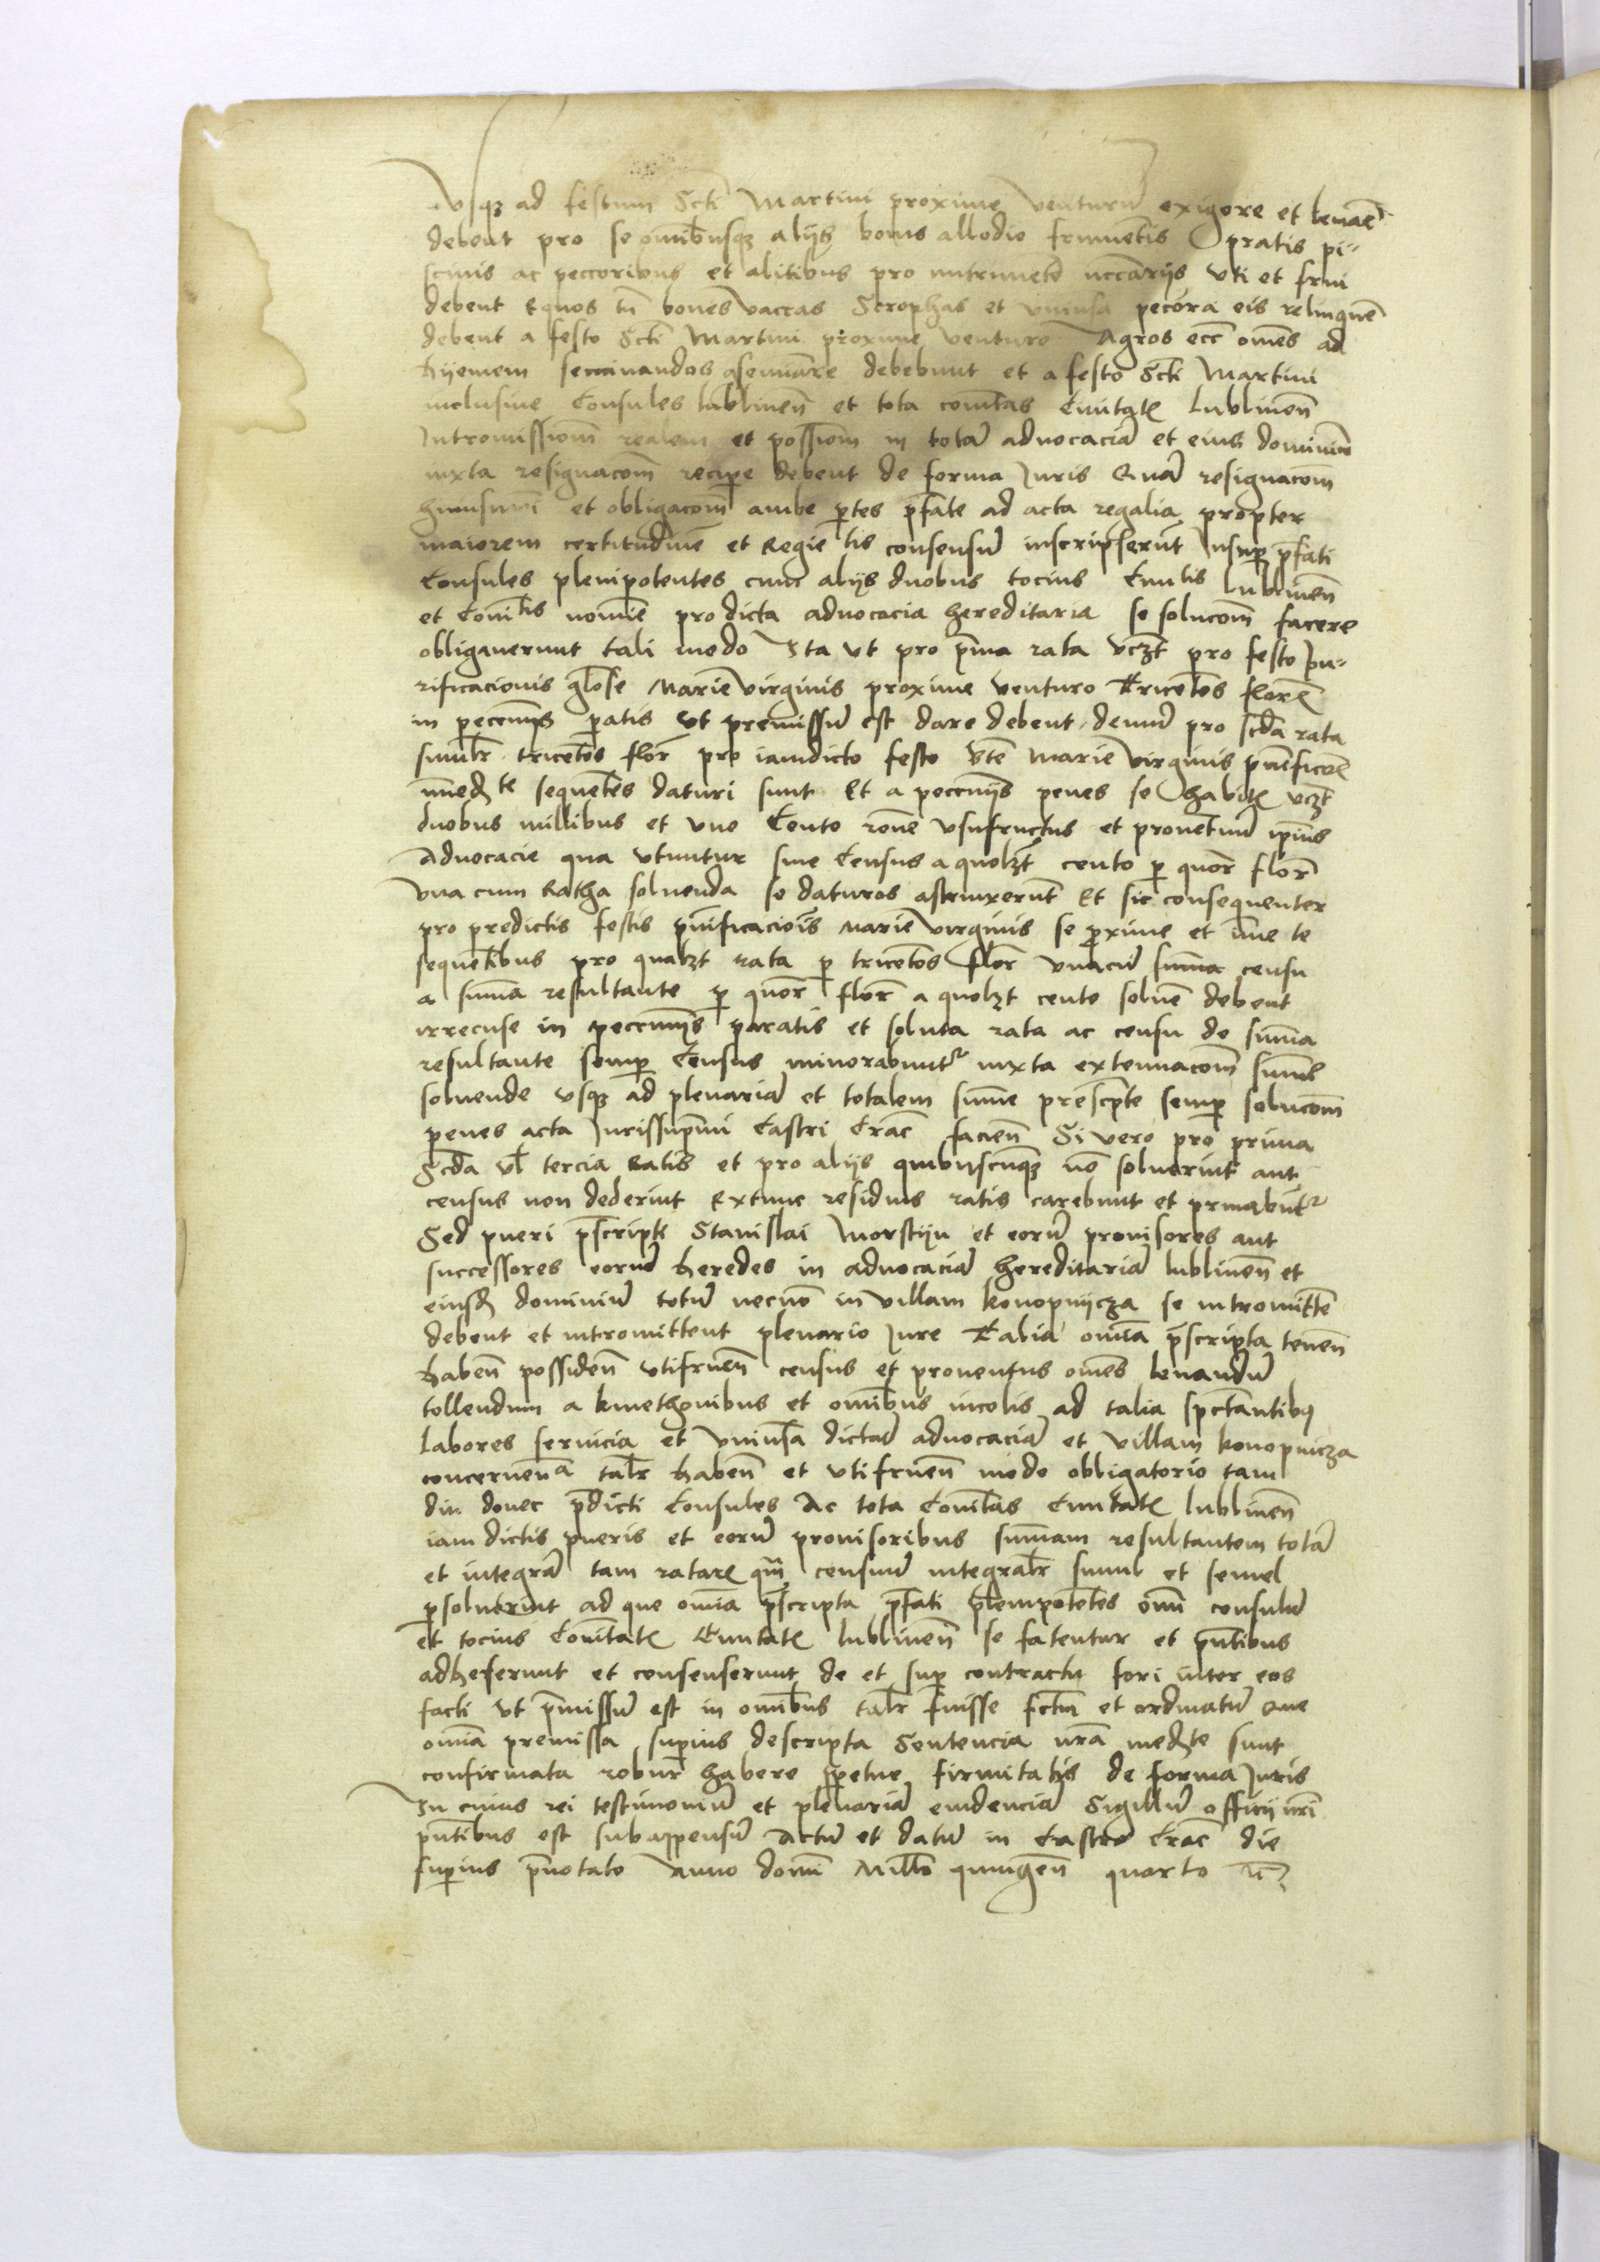 Usq3 ad festum Scti Martini proxime venturu exigere et levare
debent pro se omibusq3 aliis bonis allodio frumentis pratis pi-
scinis ac peccoribus et alitibus pro nutrimeto nccariis uti et frui
debent Equos tn boves vaccas Scrophas et univsa pecora eis relinquere
debent a festo Scti Martini proxime venturo Agros ecc omes ad
hyemem seminandos aseminare debebunt et a festo Scti Martini
inclusive Consules lublinen et tota comitas Civitatis Lublinen
Intromissiom realem et possiom in tota advocacia et eius dominium
iuxta resignacom recipe debent de forma Juris Qua resignacom
huiusmoi et obligacom ambe ptes pfate ad acta regalia propter
maiorem certitudine et Regie tis consensu inscripserunt Insup pfati
Consules plenipotentes cum aliis duobus tocius Civitis Lublinen
et Comitis nomie pro dicta advocacia hereditaria se solucom facere
obligaverunt tali modo Ita ut pro pma rata vczt pro festo pu-
rificacionis glose Marie virginis proxime venturo Tricetos floren
in peccuniis patis ut premissu est dare debent demu pro scda rata
similr tricetos flor pro iamdicto festo bte Marie virginis purificois
immed te sequetes daturi sunt Et a peccuniis penes se habitis vczt
duobus millibus et uno Cento rone usufructus et proventuu ipius
Advocacie qua utuntur sive Census a quolzt cento p quor flor
una cum Ratha solvenda se daturos astrinxerunt Et sic consequenter
pro predictis festis purificaciois Marie virginis se pxime et imme te
sequetibus pro qualzt rata p tricetos flor unacu suma censu
a suma resultante p quor flor a quolzt cento solve debent
irrecuse in peccuniis paratis et soluta rata ac censu de suma
resultante semp Census minorabuntr iuxta extenuacom summe
solvende usq3 ad plenaria et totalem sume prescpte semp solucom
penes acta Jurissupmi Castri Crac facien Si vero pro prima
Scda vl tercia Ratis et pro aliis quibuscuq3 no solverint aut
census non dederint Extunc residuis ratis carebunt et privabuntr
Sed pueri pscripti Stanislai Morstijn et eoru provisores aut
successores eorum heredes in advocacia hereditaria lublinen et
eiusd dominiu totu necno in villam konopnijcza se intromitte
debent et intromittent plenario Jure Talia omia pscripta tenen
haben possiden utifruen census et proventus omes levandu
tollendum a kmethonibus et omibus incolis ad talia spctantibus
labores servicia et univsa dicta advocacia et villam konopnicza
concernena talr haben et utifruen modo obligatorio tam
diu donec pdicti Consules Ac tota Comitas Civitatis lublinen
iam dictis pueris et eoru provisoribus sumam resultantem tota
et integra tam ratare qm censuu integralr simul et semel
psolverint ad que omia pscripta pfati plenipotetes omi consulu
et tocius Comitatis Civitatis lublinen se fatentur et pntibus
adheserunt et consenserunt de et sup contractu fori inter eos
facti ut pmissu est in omibus talr fuisse fctm et ordinatu Que
omia premissa supius descripta Sentencia nra med te sunt
confirmata robur habere ppetue firmitatis de forma Juris
In cuius rei testimoniu et plenaria evidencia Sigillu officii nri
pntibus est subappensu Actu et datu in Castro Crac die
supius pnotato Anno domi Millo quingen quarto